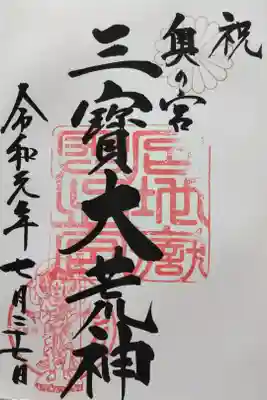 祝
奥の宮
三寳大荒神
令和元年七月二十七日